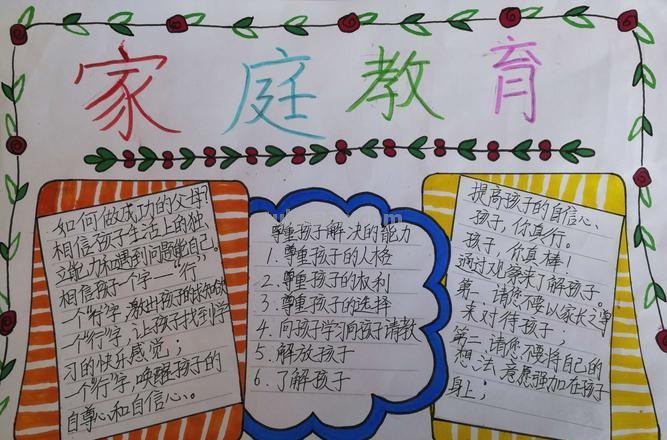 家庭教育
如何做成功的父母?
相信孩子生活上的独
立能力和遇到问题能自己。
相信孩子一个字一“行”
一个“行”字,激出孩子的求知欲
一个“行”字,让孩子找到学
习的快乐感觉;
一个“行”字,唤醒孩子的
自尊心和自信心、
尊重孩子解决的能力
1.尊重孩子的人格
2.尊重孩子的权利
3.尊重孩子的选择
4.向孩子学习向孩子请教
5.解放孩子
6.了解孩子
提高孩子的自信心、
孩子,你真行。
孩子,你真棒!
通过观察来了解孩子。
第一,请您不要以家长之尊
来对待孩子,
第二请您不要将自己的
想法意愿强加在孩子
身上;